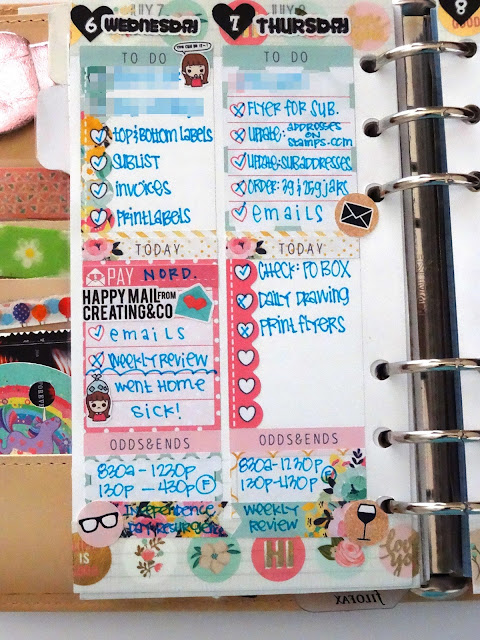 6 WEDNESDAY
TO DO
Top & Bottom Labels
SUBLIST
invoices
Print Labels
TODAY
PAY NORD.
HAPPY MAIL FROM
CREATING & CO
emails
Weekly Review
Went Home
Sick!
ODDS&ENDS
830a-1230p
130p-430p F
Independence
Day: Resurgence
IS
7 THURSDAY
TO DO
FLYER FOR SUB.
UPDATE: ADDRESSES
ON
STAMPS.COM
UPDATE: SUB ADDRESSES
ORDER: 39 & 259 JARS
emails
TODAY
CHECK: PO BOX
DAILY DRAWING
PRINT FLYERS
ODDS&ENDS
830a-1230p
130p-430p F
WEEKLY
REVIEW
HI
love
you
8
FOREVER
FILOFAX